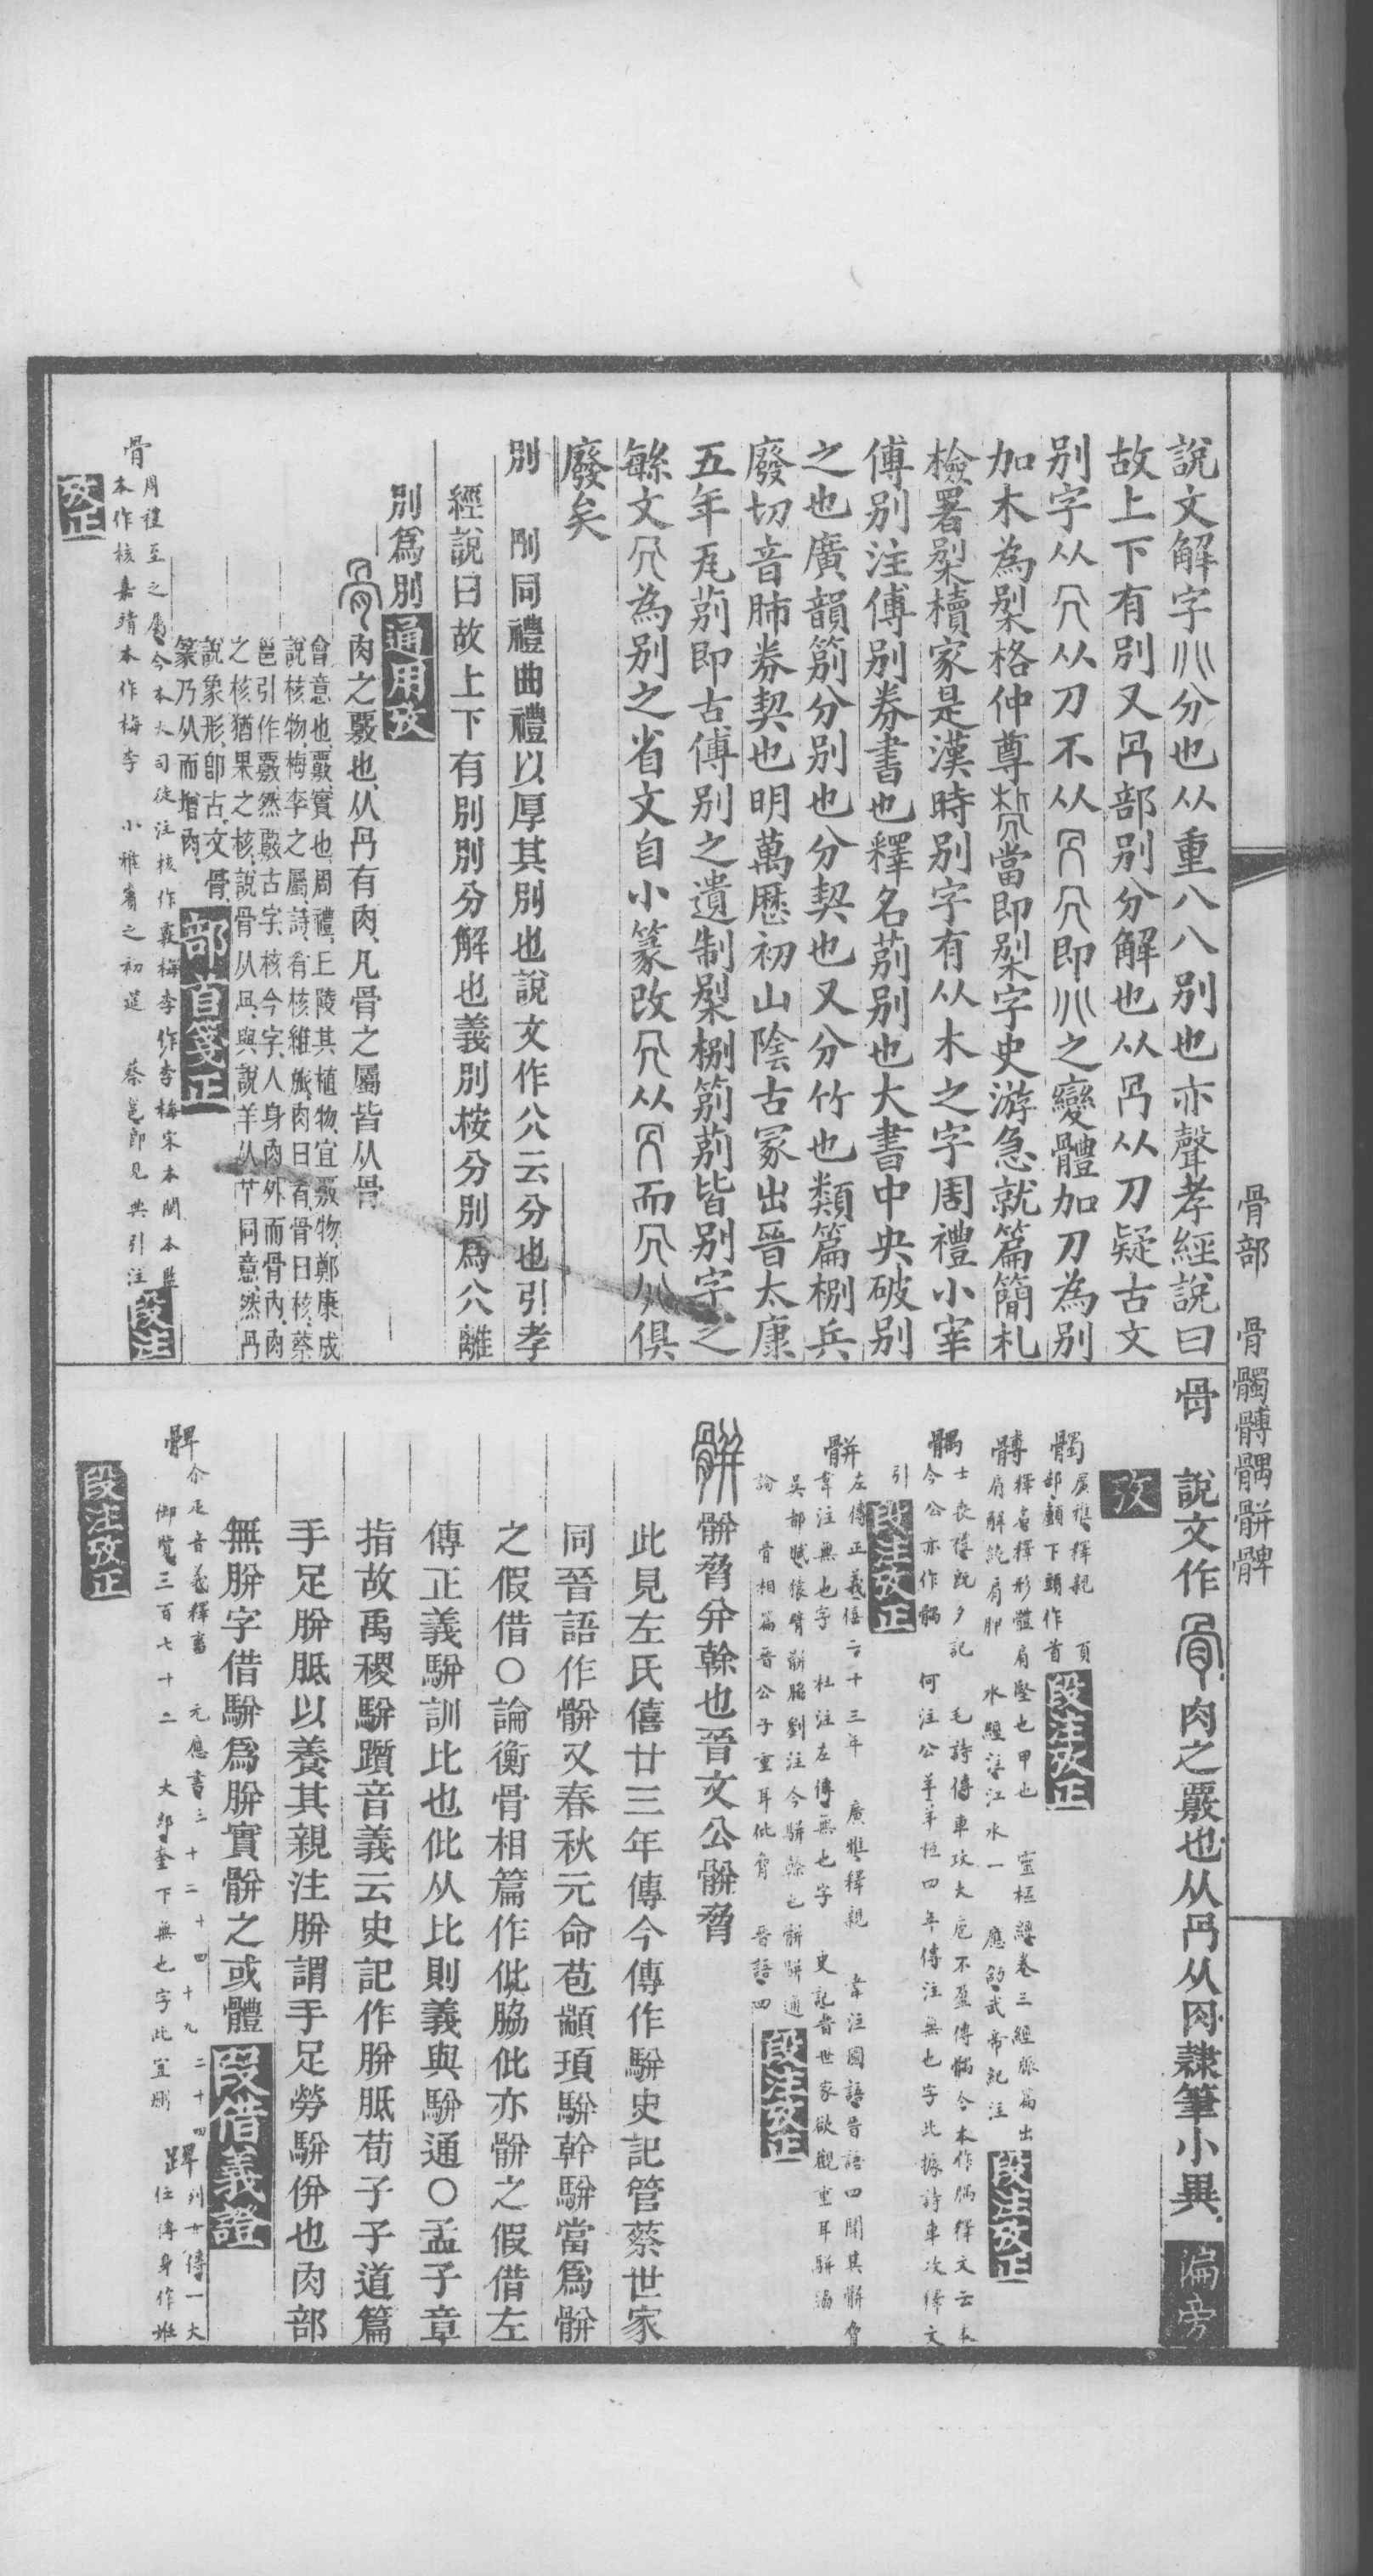 說文解字𠔁分也从重八八別也亦聲孝經說曰
故上下有別又冎部別分解也从冎从刀疑古文
別字从𠔁从刀不从冎𠔁即𠔁之變體加刀為別
加木為㭭格仲尊當即㭭字史游急就篇簡札
檢署㭭櫝家是漢時別字有从木之字周禮小宰
傅別注傅別券書也釋名莂別也大書中央破別
之也廣韻箣分別也分契也又分竹也類篇捌兵
廢切音肺券契也明萬歷初山陰古冢出晉太康
五年瓦莂即古傅別之遺制㭭捌箣莂皆別字之
緐文𠔁為別之省文自小篆改𠔁从冎而𠔁𠔁俱
廢矣
別 刐同禮曲禮以厚其別也說文作公云分也引孝
經說曰故上下有別別分解也義別桉分別爲公離
別爲別
通用攷
肉之覈也从冎有肉凡骨之屬皆从骨
會意也覈實也周禮丘陵其植物宜覈物鄭康成
說核物梅李之屬詩肴核維旅肉曰肴骨曰核蔡
邕引作覈然覈古字核今字人身肉外而骨內肉
之核猶果之核說骨从冎與說羊从𦫳同意然冎
說象形即古文骨
篆乃从而增肉
部首箋正
骨 周禮至之屬今本大司徒注核作覈梅李作李梅宋本閩本監
本作核嘉靖本作梅李 小雅賓之初筵 蔡邕即見典引注
段注
攷正
骨部 骨髑髆髃骿髀
骨 說文作 肉之覈也从冎从肉隸筆小異
偏旁
攷
髑 廣雅釋親 頁
部顱下頭作首
段注攷正
髆 釋名釋形體肩堅也甲也 靈樞經卷三經脈篇出
肩解繞肩胛 水經注江水一 應劭武帝紀注
段注攷正
髃 士喪禮既夕記 毛詩傳車攻大庖不盈傳髃今本作腢釋文云本
今公亦作髃 何注公羊羊桓四年傳注無也字此據詩車攻釋文
引
段注攷正
骿 左傳正義僖二十三年 廣雅釋親 韋注國語晉語四聞其骿脅
韋注無也字 杜注左傳無也字 史記晉世家欲觀重耳駢脅
吳都賦猿臂骿脅劉注今駢榦也骿駢通
論 骨相篇晉公子重耳仳脅 晉語四
段注攷正
骿脅并榦也晉文公骿脅
此見左氏僖廿三年傳今傳作駢史記管蔡世家
同晉語作骿又春秋元命苞顓頊駢幹駢當爲骿
之假借〇論衡骨相篇作仳脇仳亦骿之假借左
傳正義駢訓比也仳从比則義與駢通〇孟子章
指故禹稷駢躓音義云史記作胼胝荀子子道篇
手足胼胝以養其親注胼謂手足勞駢併也肉部
無胼字借駢爲胼實骿之或體
段借義證
髀 介疋音義釋畜 元應書三 十二 十四 十九 二十四
御覽三百七十二 大部奎下無也字此宜刪 踔 列女傳一大
任傳身作雉
段注攷正